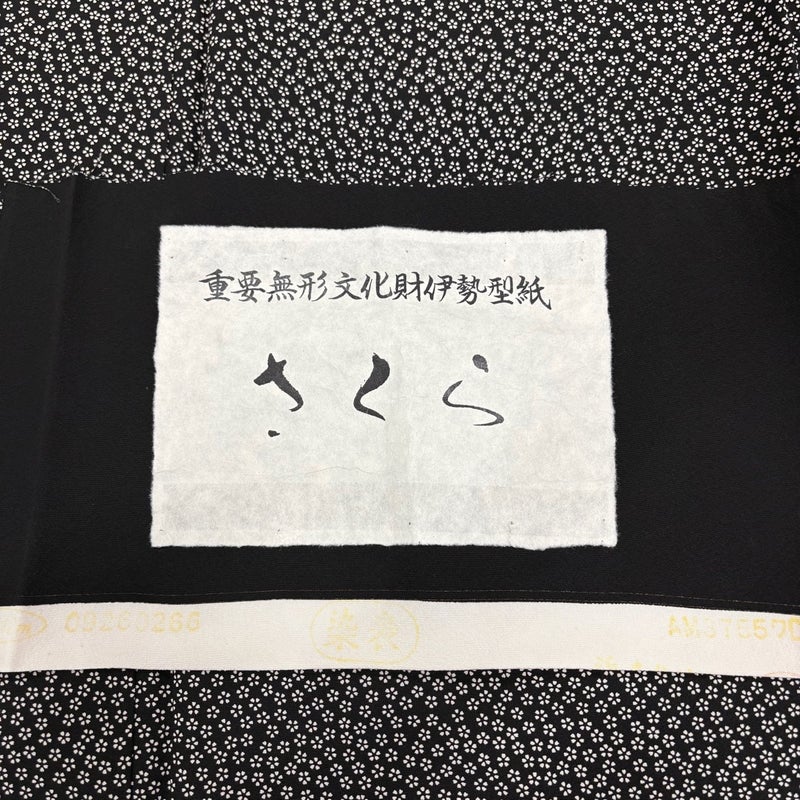 重要無形文化財伊勢型紙
さくら
染表